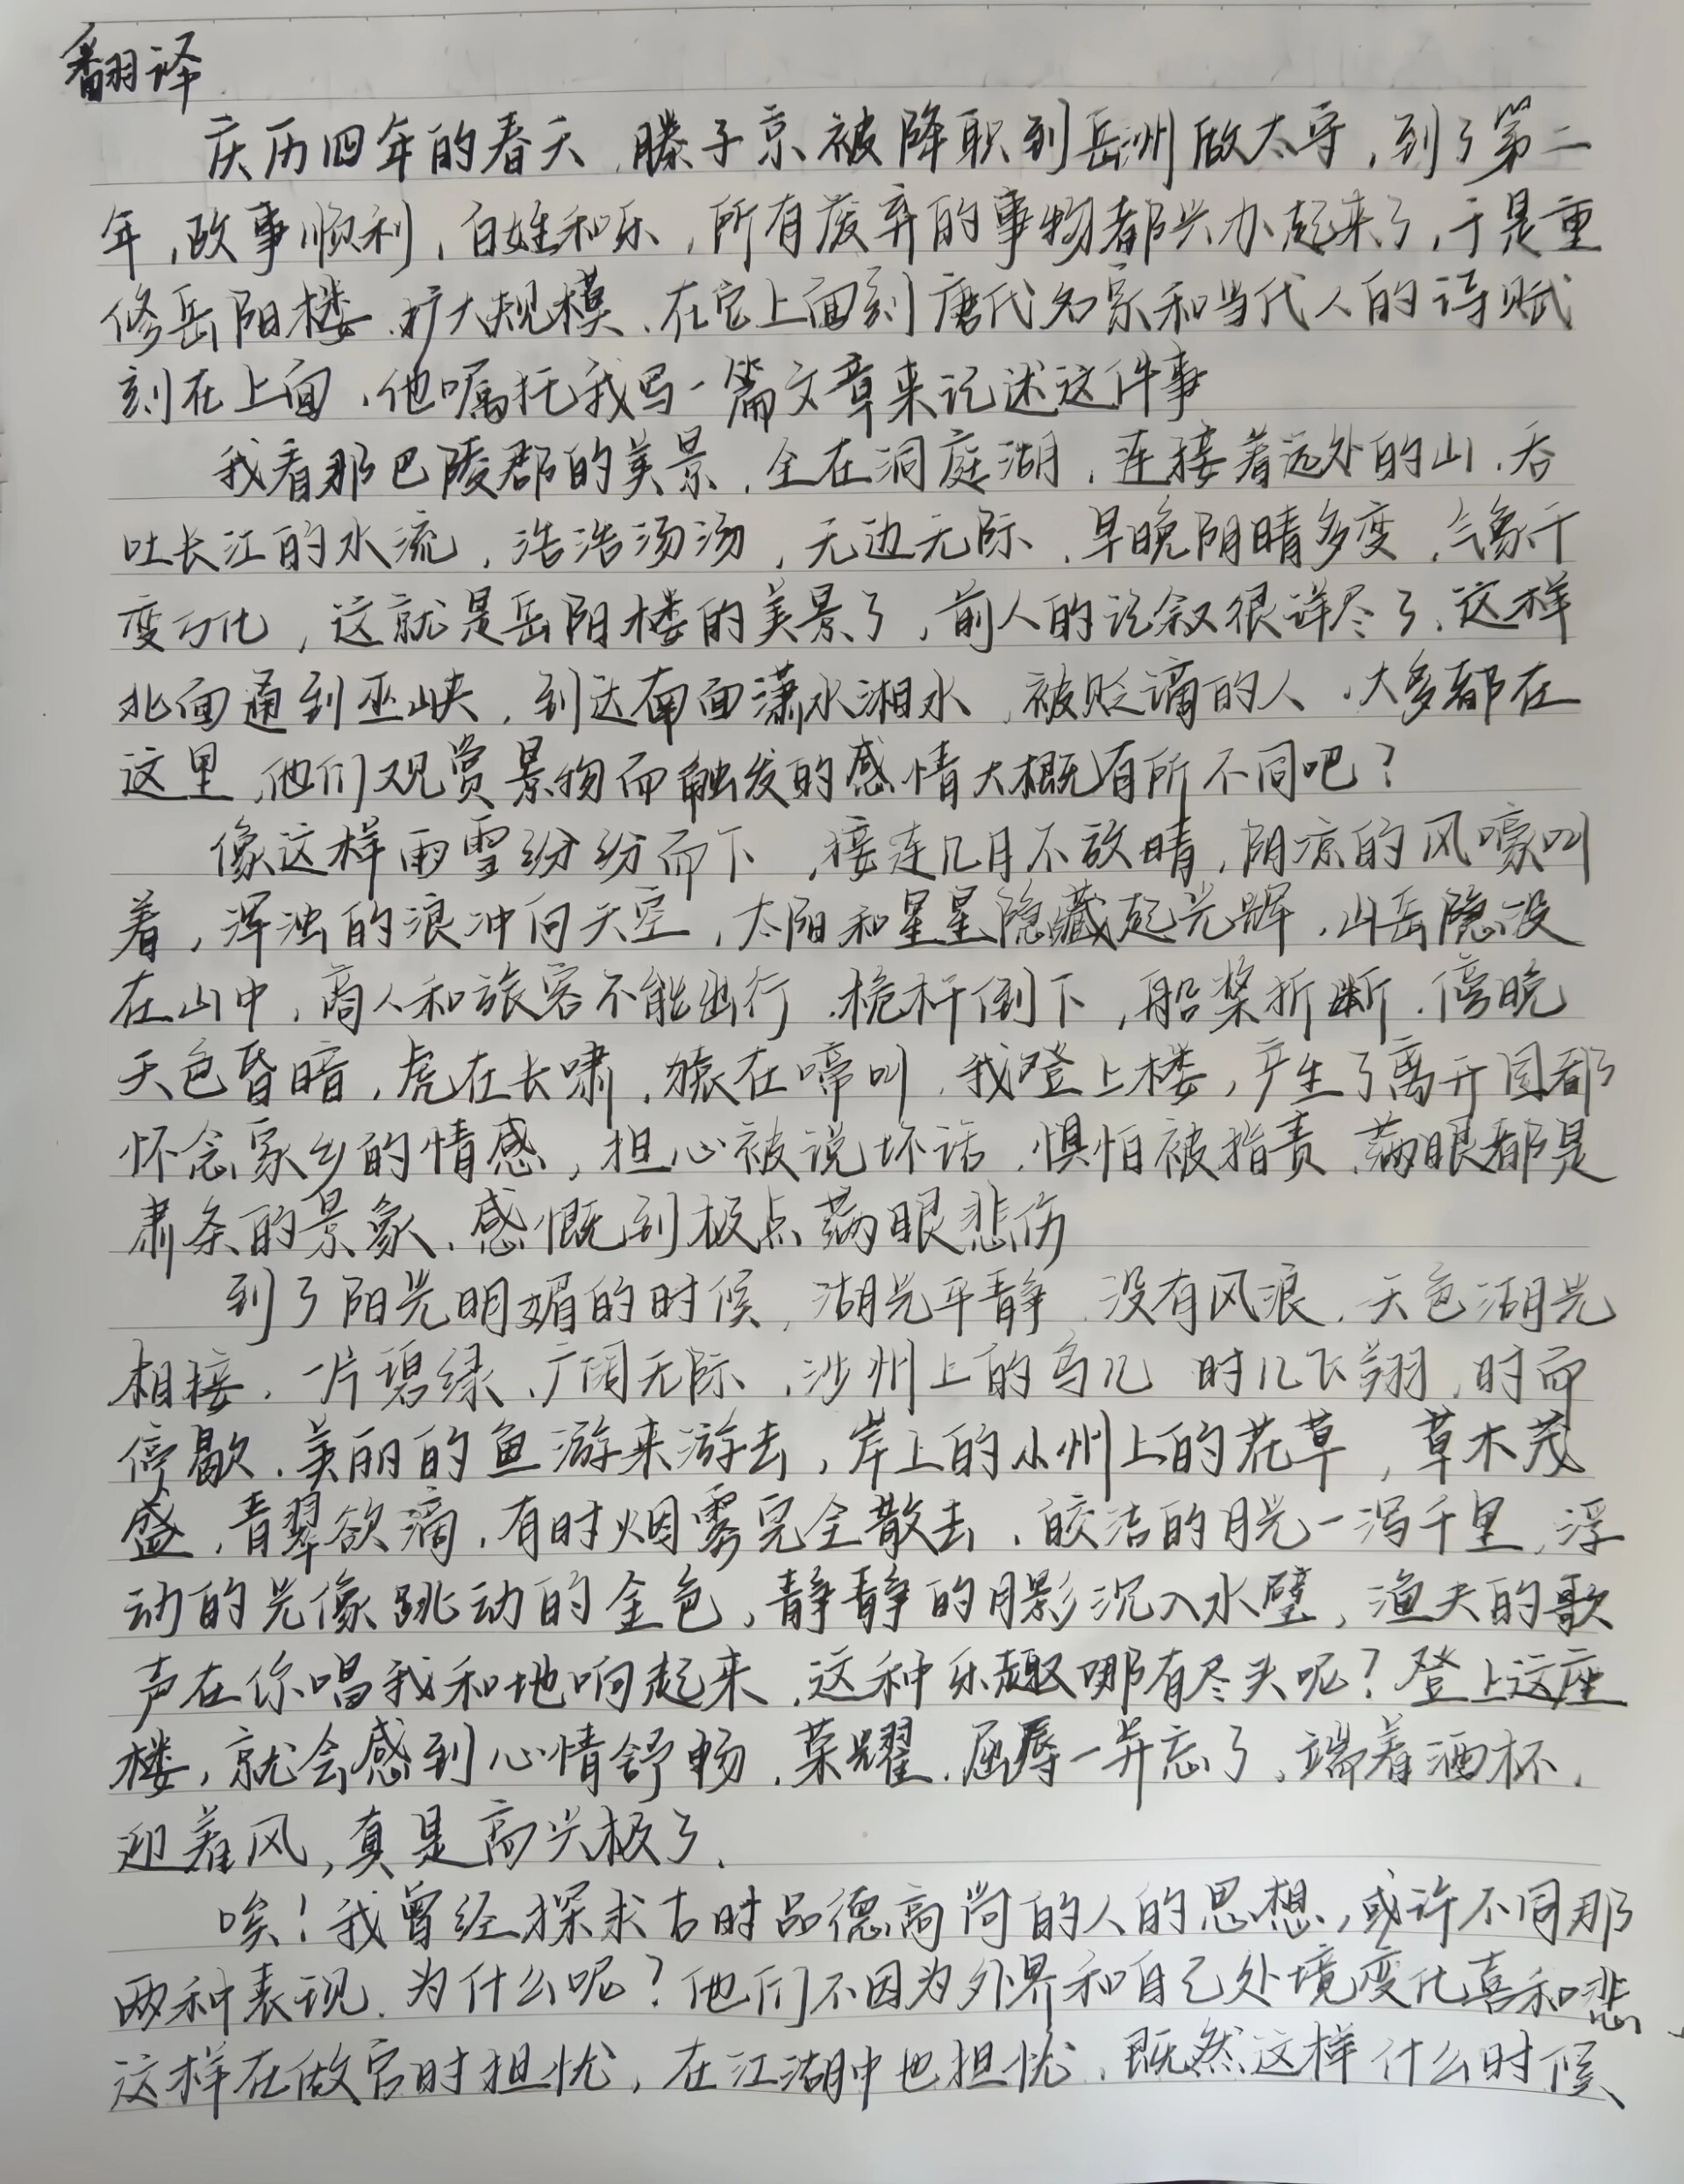 翻译
庆历四年的春天,滕子京被降职到岳州做太守,到了第二
年,政事顺利,百姓和乐,所有废弃的事物都兴办起来了,于是重
修岳阳楼,扩大规模,在它上面刻唐代名家和当代人的诗赋
刻在上面,他嘱托我写一篇文章来记述这件事
我看那巴陵郡的美景,全在洞庭湖,连接着远处的山,吞
吐长江的水流,浩浩汤汤,无边无际,早晚阴晴多变,气象千
变万化,这就是岳阳楼的美景了,前人的记叙很详尽了,这样
北面通到巫峡,到达南面潇水湘水,被贬谪的人,大多都在
这里,他们观赏景物而触发的感情大概有所不同吧?
像这样雨雪纷纷而下,接连几月不放晴,阴凉的风嚎叫
着,浑浊的浪冲向天空,太阳和星星隐藏起光辉,山岳隐没
在山中,商人和旅客不能出行,桅杆倒下,船桨折断,傍晚
天色昏暗,虎在长啸,猿在啼叫,我登上楼,产生了离开国都
怀念家乡的情感,担心被说坏话,惧怕被指责,满眼都是
肃条的景象,感慨到极点满眼悲伤
到了阳光明媚的时候,湖光平静,没有风浪,天色湖光
相接,一片碧绿,广阔无际,沙州上的鸟儿 时儿飞翔,时而
停歇,美丽的鱼游来游去,岸上的小州上的花草,草木茂
盛,青翠欲滴,有时烟雾完全散去,皎洁的月光一泻千里,浮
动的光像跳动的金色,静静的月影沉入水壁,渔夫的歌
声在你唱我和地响起来,这种乐趣哪有尽头呢?登上这座
楼,就会感到心情舒畅,荣耀,屈辱一并忘了,端着酒杯,
迎着风,真是高兴极了.
唉!我曾经探求古时品德高尚的人的思想,或许不同那
两种表现.为什么呢?他们不因为外界和自己处境变化喜和悲、
这样在做官时担忧,在江湖中也担忧,既然这样什么时候、